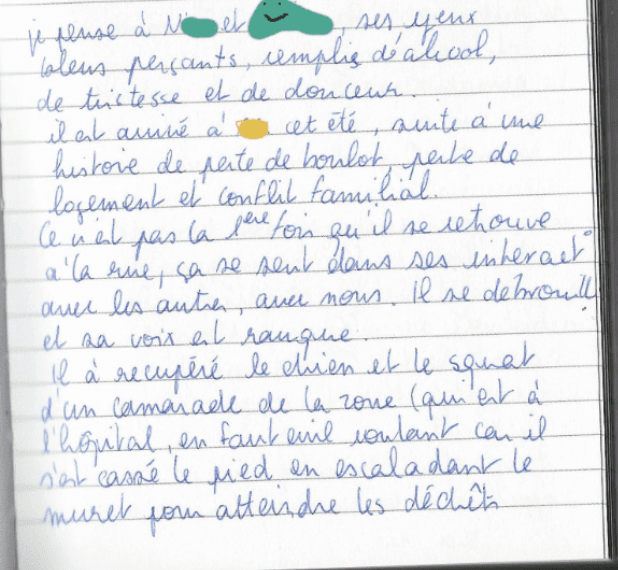 je pense à N et , ses yeux
bleus perçants, remplis d'alcool,
de tristesse et de douceur.
il est arrivé à cet été, suite à une
histoire de perte de boulot, perte de
logement et conflit familial.
Ce n'est pas la 1ère fois qu'il se retrouve
à la rue, ça se sent dans ses interact°
avec les autres, avec nous. Il se débrouille
et sa voix est rauque.
Il à récupéré le chien et le squat
d'un camarade de la zone (qui est à
l'hôpital, en fauteuil roulant car il
s'est cassé le pied en escaladant le
muret pour atteindre les déchêts